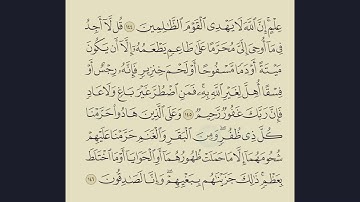 عِلْمٍ إِنَّ ٱللَّهَ لَا يَهْدِى ٱلْقَوْمَ ٱلظَّٰلِمِينَ ١٤٤ قُل لَّآ أَجِدُ
فِى مَآ أُوحِىَ إِلَىَّ مُحَرَّمًا عَلَىٰ طَاعِمٍ يَطْعَمُهُۥٓ إِلَّآ أَن يَكُونَ
مَيْتَةً أَوْ دَمًا مَّسْفُوحًا أَوْ لَحْمَ خِنزِيرٍ فَإِنَّهُۥ رِجْسٌ أَوْ
فِسْقًا أُهِلَّ لِغَيْرِ ٱللَّهِ بِهِۦ فَمَنِ ٱضْطُرَّ غَيْرَ بَاغٍ وَلَا عَادٍ
فَإِنَّ رَبَّكَ غَفُورٌ رَّحِيمٌ ١٤٥ وَعَلَى ٱلَّذِينَ هَادُوا۟ حَرَّمْنَا
كُلَّ ذِى ظُفُرٍ وَمِنَ ٱلْبَقَرِ وَٱلْغَنَمِ حَرَّمْنَا عَلَيْهِمْ
شُحُومَهُمَآ إِلَّا مَا حَمَلَتْ ظُهُورُهُمَآ أَوِ ٱلْحَوَايَآ أَوْ مَا ٱخْتَلَطَ
بِعَظْمٍ ذَٰلِكَ جَزَيْنَٰهُم بِبَغْيِهِمْ وَإِنَّا لَصَٰدِقُونَ ١٤٦